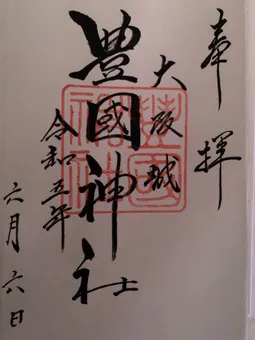 奉拝
大阪城
豊國神社
令和五年
六月六日
豐國
神社